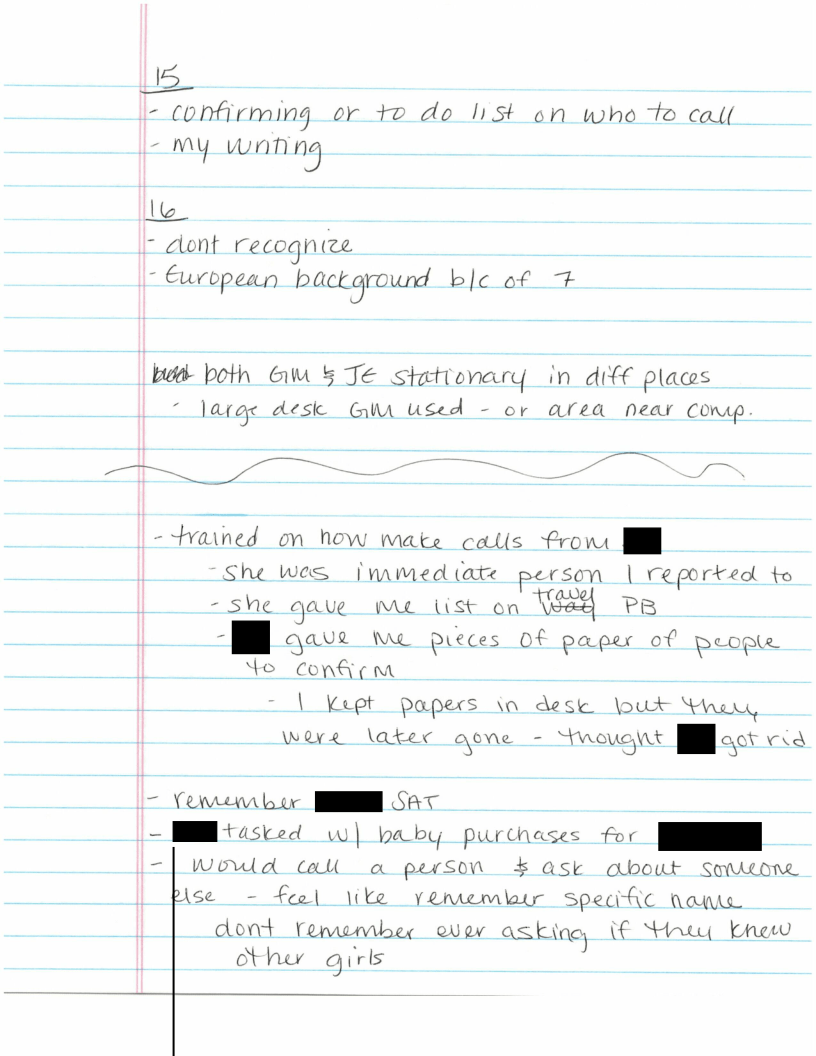 15
- confirming or to do list on who to call
- my writing
16
- dont recognize
- European background b/c of 7
both GM & JE stationary in diff places
- large desk GM used - or area near comp.
- trained on how make calls from
- she was immediate person I reported to
- she gave me list on travel PB
- gave me pieces of paper of people
to confirm
- I kept papers in desk but they
were later gone - thought got rid
- remember SAT
- tasked w/ baby purchases for
- would call a person & ask about someone
else - feel like remember specific name
dont remember ever asking if they knew
other girls